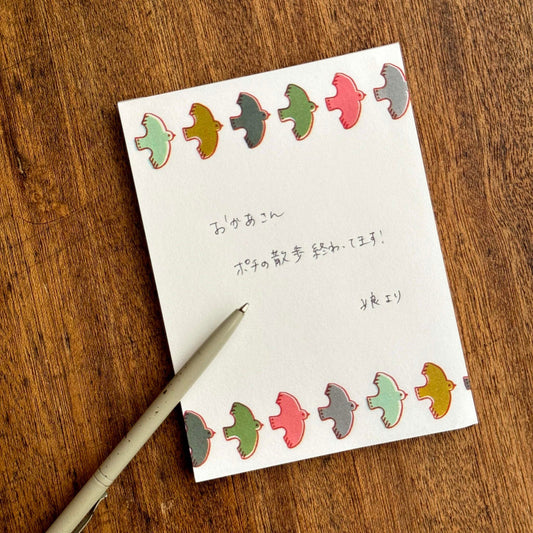 おかあさん
ポチの散歩終わってます!
娘より